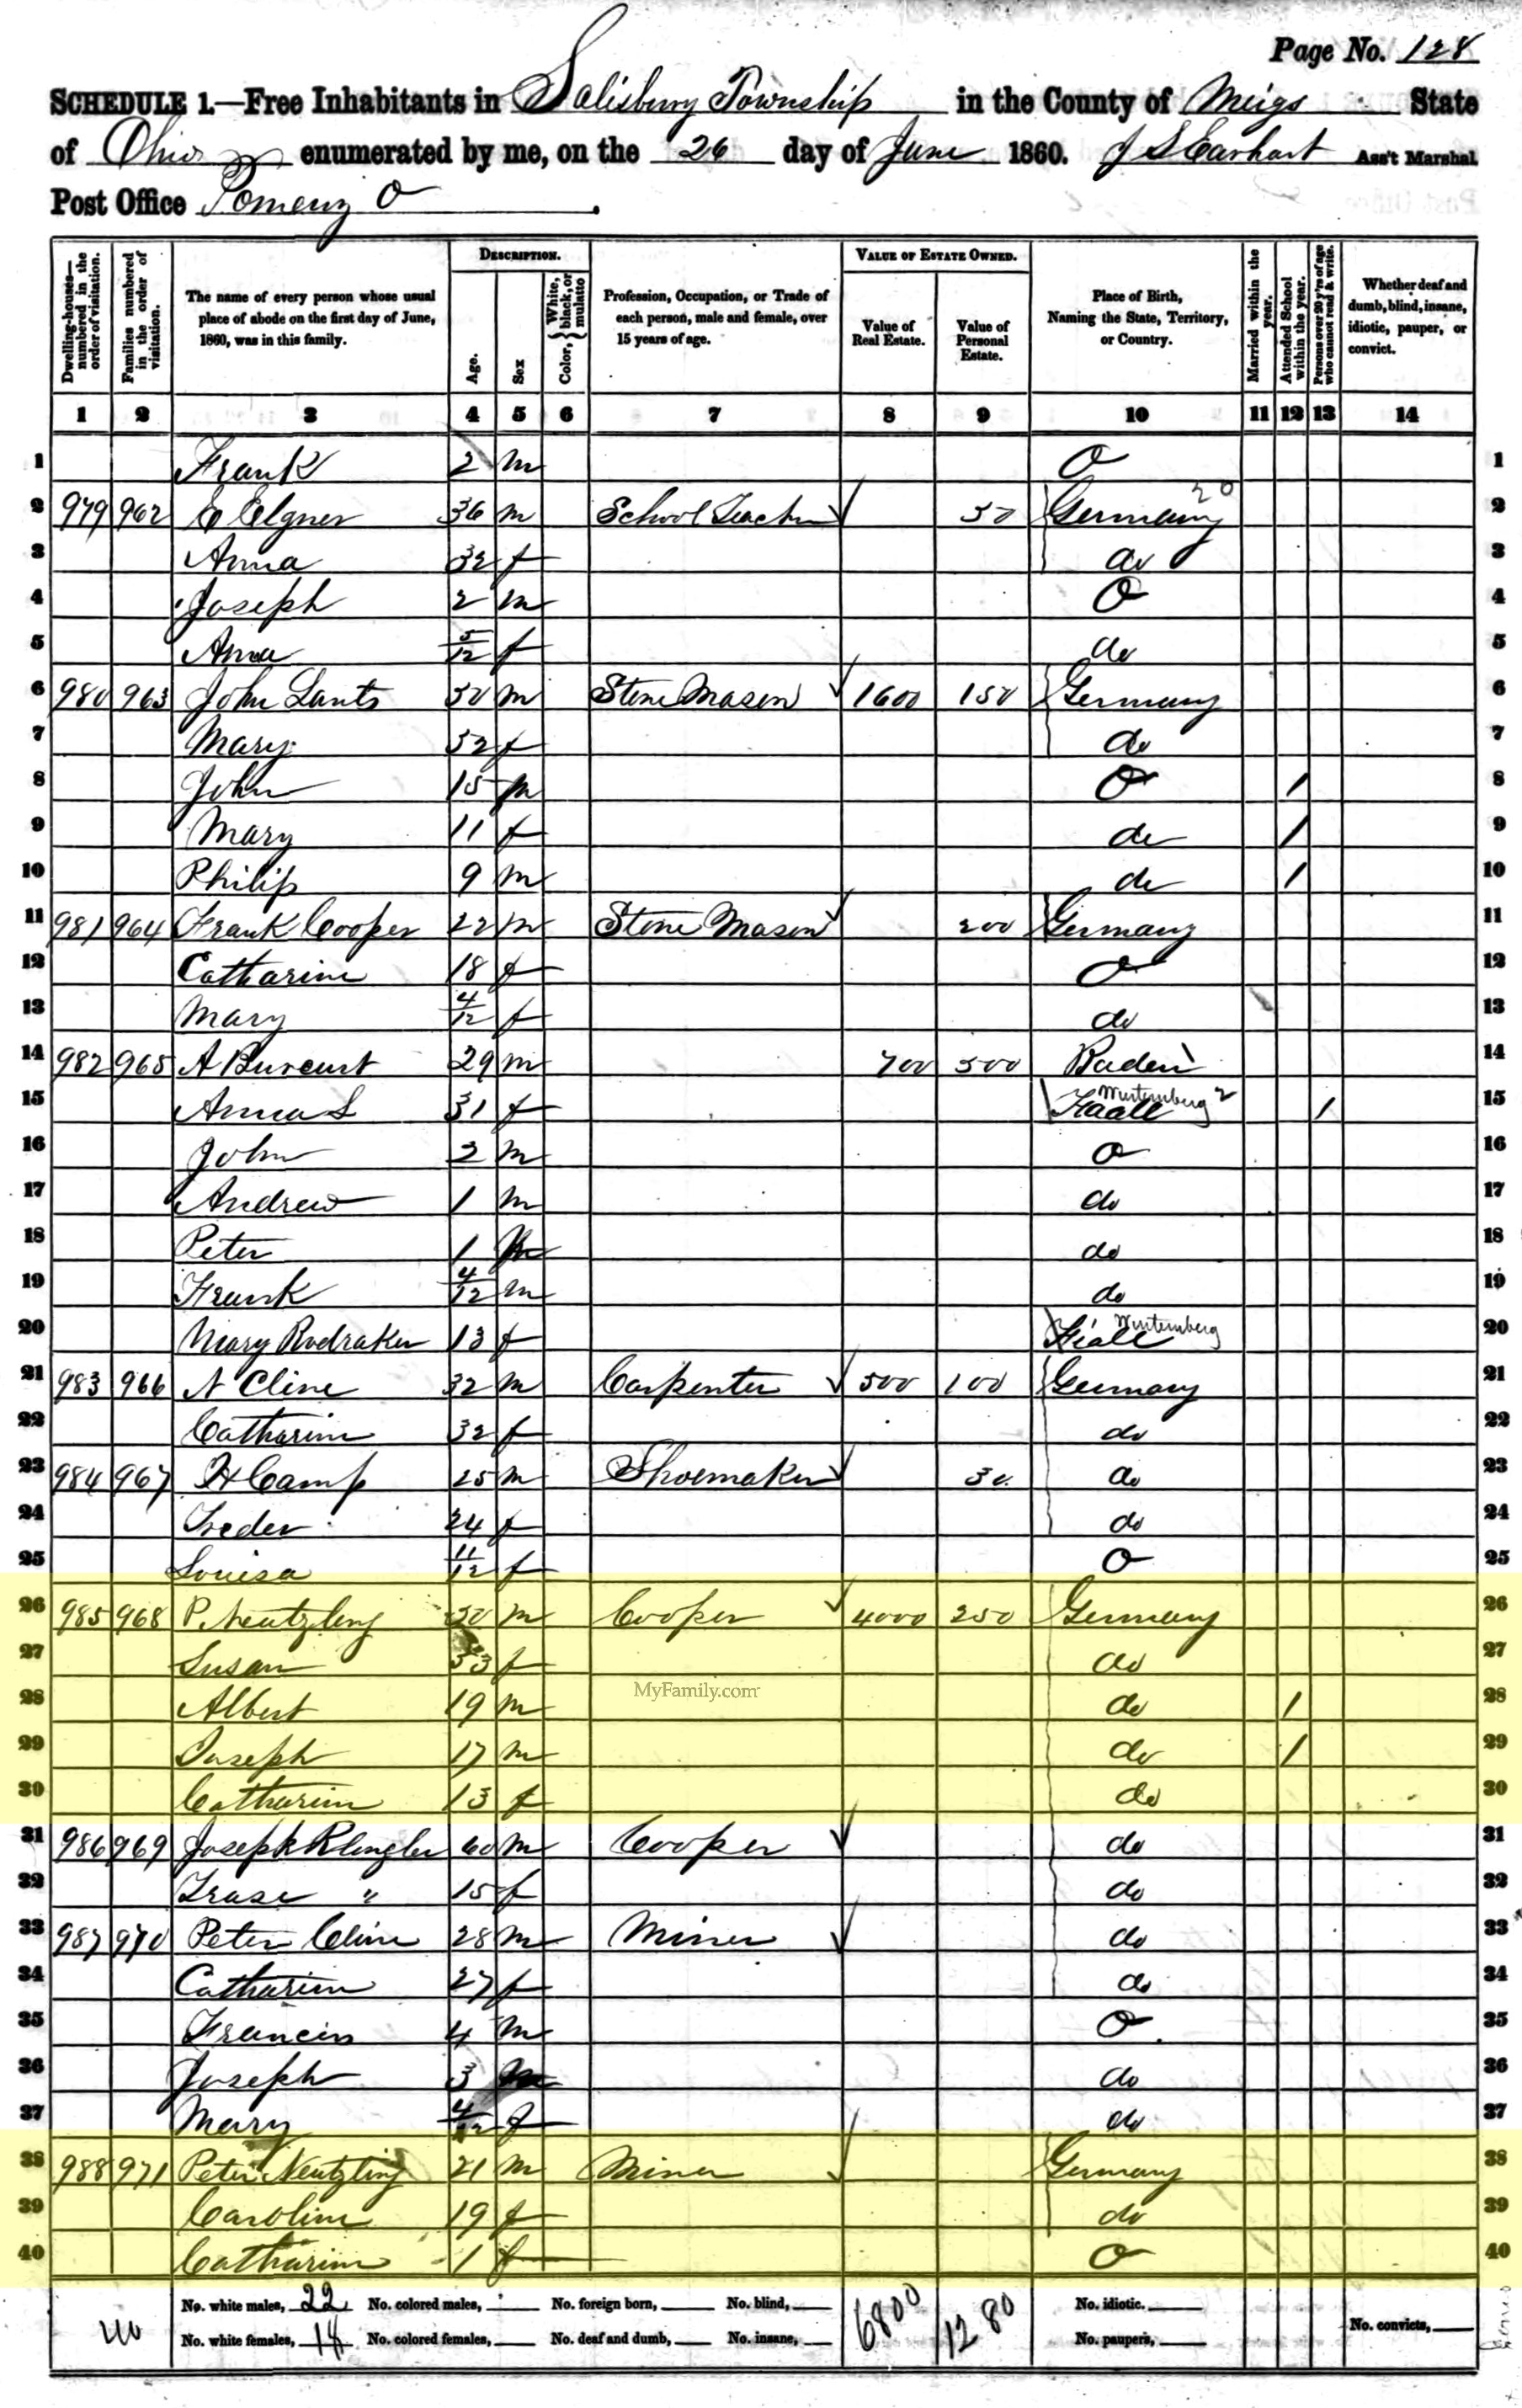 Page No. 128
SCHEDULE 1.—Free Inhabitants in Salisbury Township in the County of Meigs State
of Ohio enumerated by me, on the 26 day of June 1860. J S Earhart Ass't Marshal.
Post Office Pomeroy O.
Dwelling-houses—numbered in the order of visitation.
Families numbered in the order of visitation.
The name of every person whose usual place of abode on the first day of June, 1860, was in this family.
DESCRIPTION.
Age.
Sex
Color, {White, black, or mulatto}
Profession, Occupation, or Trade of each person, male and female, over 15 years of age.
VALUE OF ESTATE OWNED.
Value of Real Estate.
Value of Personal Estate.
Place of Birth, Naming the State, Territory, or Country.
Married within the year.
Attended School within the year.
Persons over 20 y'rs of age who cannot read & write.
Whether deaf and dumb, blind, insane, idiotic, pauper, or convict.
1 2 3 4 5 6 7 8 9 10 11 12 13 14
1 Frank 2 m O 1
2 979 962 E Elgner 36 m School Teacher 50 Germany 20 2
3 Anna 32 f do 3
4 Joseph 2 m O 4
5 Anna 5/12 f do 5
6 980 963 John Lants 50 m Stone Mason 1600 150 Germany 6
7 Mary 52 f do 7
8 John 15 m O / 8
9 Mary 11 f do / 9
10 Philip 9 m do / 10
11 981 964 Frank Cooper 22 m Stone Mason 200 Germany 11
12 Catharine 18 f O 12
13 Mary 4/12 f do 13
14 982 965 A 29 m 700 500 Baden 1 14
15 Anna S 31 f Wurtemberg 2 / 15
16 John 2 m O 16
17 Andrew 1 m do 17
18 Peter 1 m do 18
19 Frank 4/12 m do 19
20 Mary Rodraker 13 f Wurtemberg 20
21 983 966 N Cline 32 m Carpenter 500 100 Germany 21
22 Catharine 32 f do 22
23 984 967 H Camp 25 m Shoemaker 30 do 23
24 24 f do 24
25 Louisa 11/12 f O 25
26 985 968 P. Neutzling 50 m Cooper 4000 250 Germany 26
27 Susan 53 f do 27
28 Albert 19 m MyFamily.com do 1 28
29 Joseph 17 m do / 29
30 Catharine 13 f do 30
31 986 969 Joseph Klingler 60 m Cooper do 31
32 " 15 f do 32
33 987 970 Peter Cline 28 m Miner do 33
34 Catharine 27 f do 34
35 Francis 4 m O 35
36 Joseph 3 m do 36
37 Mary 4/12 f do 37
38 988 971 Peter Neutzling 21 m Miner Germany 38
39 Caroline 19 f do 39
40 Catharine 1 f O 40
No. white males, 22 No. colored males, No. foreign born, No. blind, 6800 1280 No. idiotic.
No. white females, 18 No. colored females, No. deaf and dumb, No. insane, No. paupers, No. convicts,